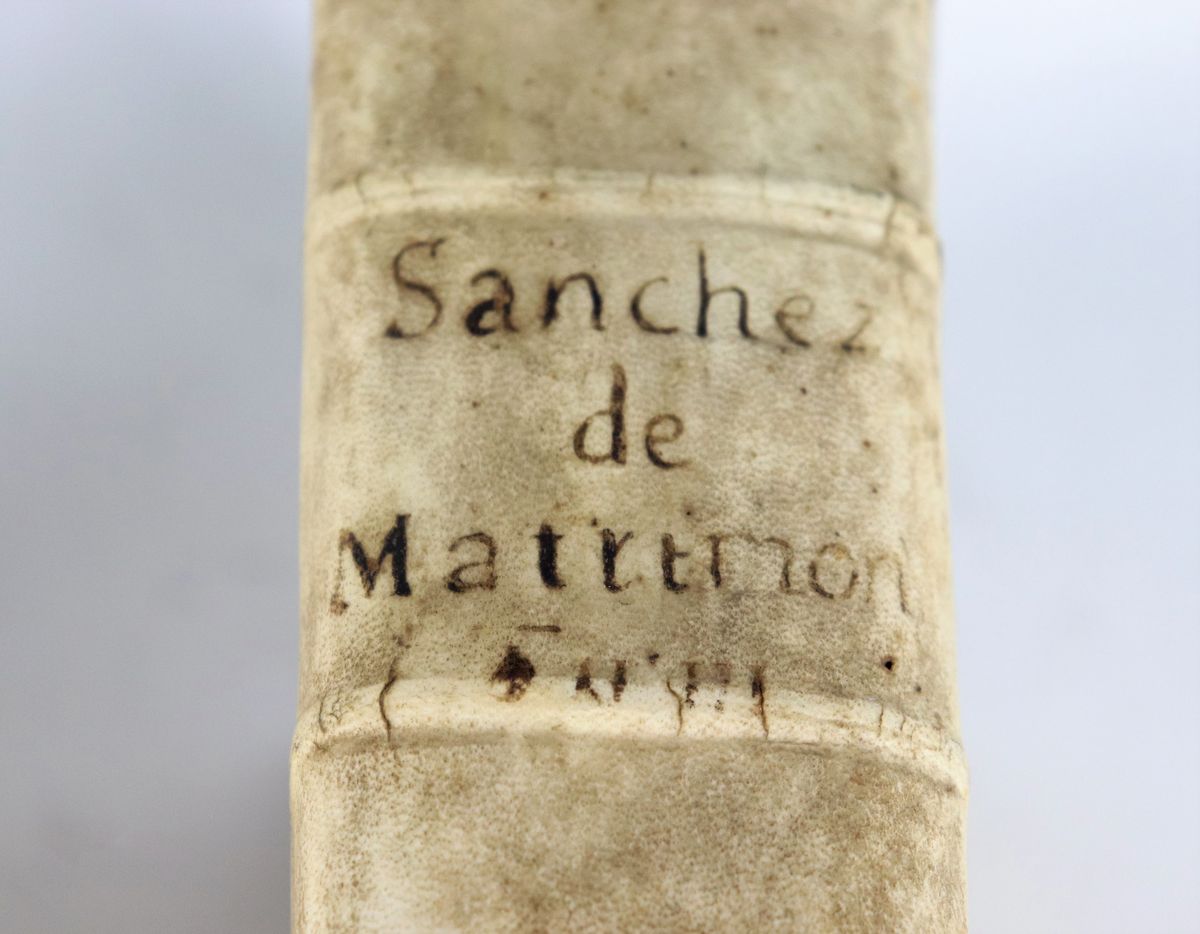 Sanchez
de
Matrimon